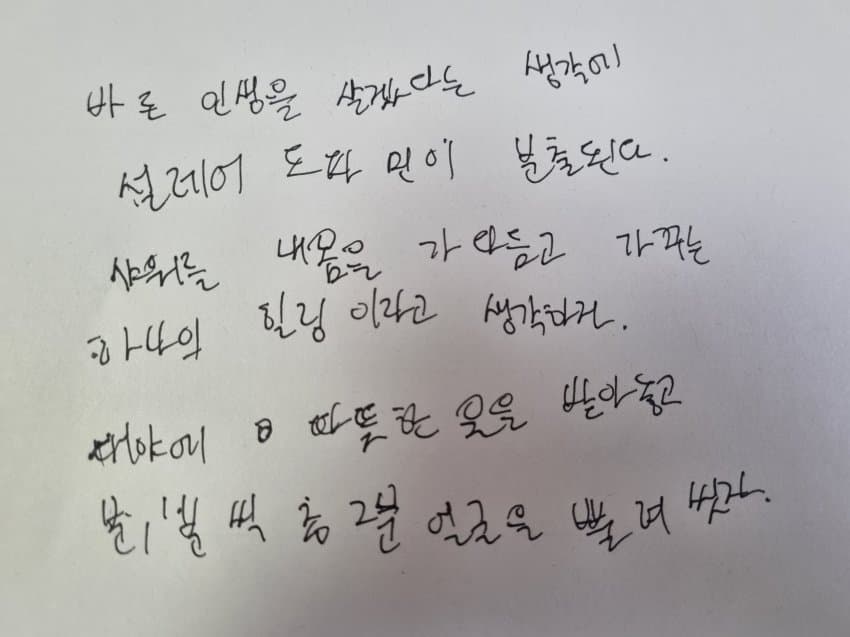 바른 인생을 살겠다는 생각에
설레어 도파민이 분출된다.
샤워를 내몸을 가다듬고 가꾸는
하나의 힐링이라고 생각하자.
대야에 따뜻한 물을 받아놓고
1분씩 총 2분 얼굴을 뿔려 씻자.